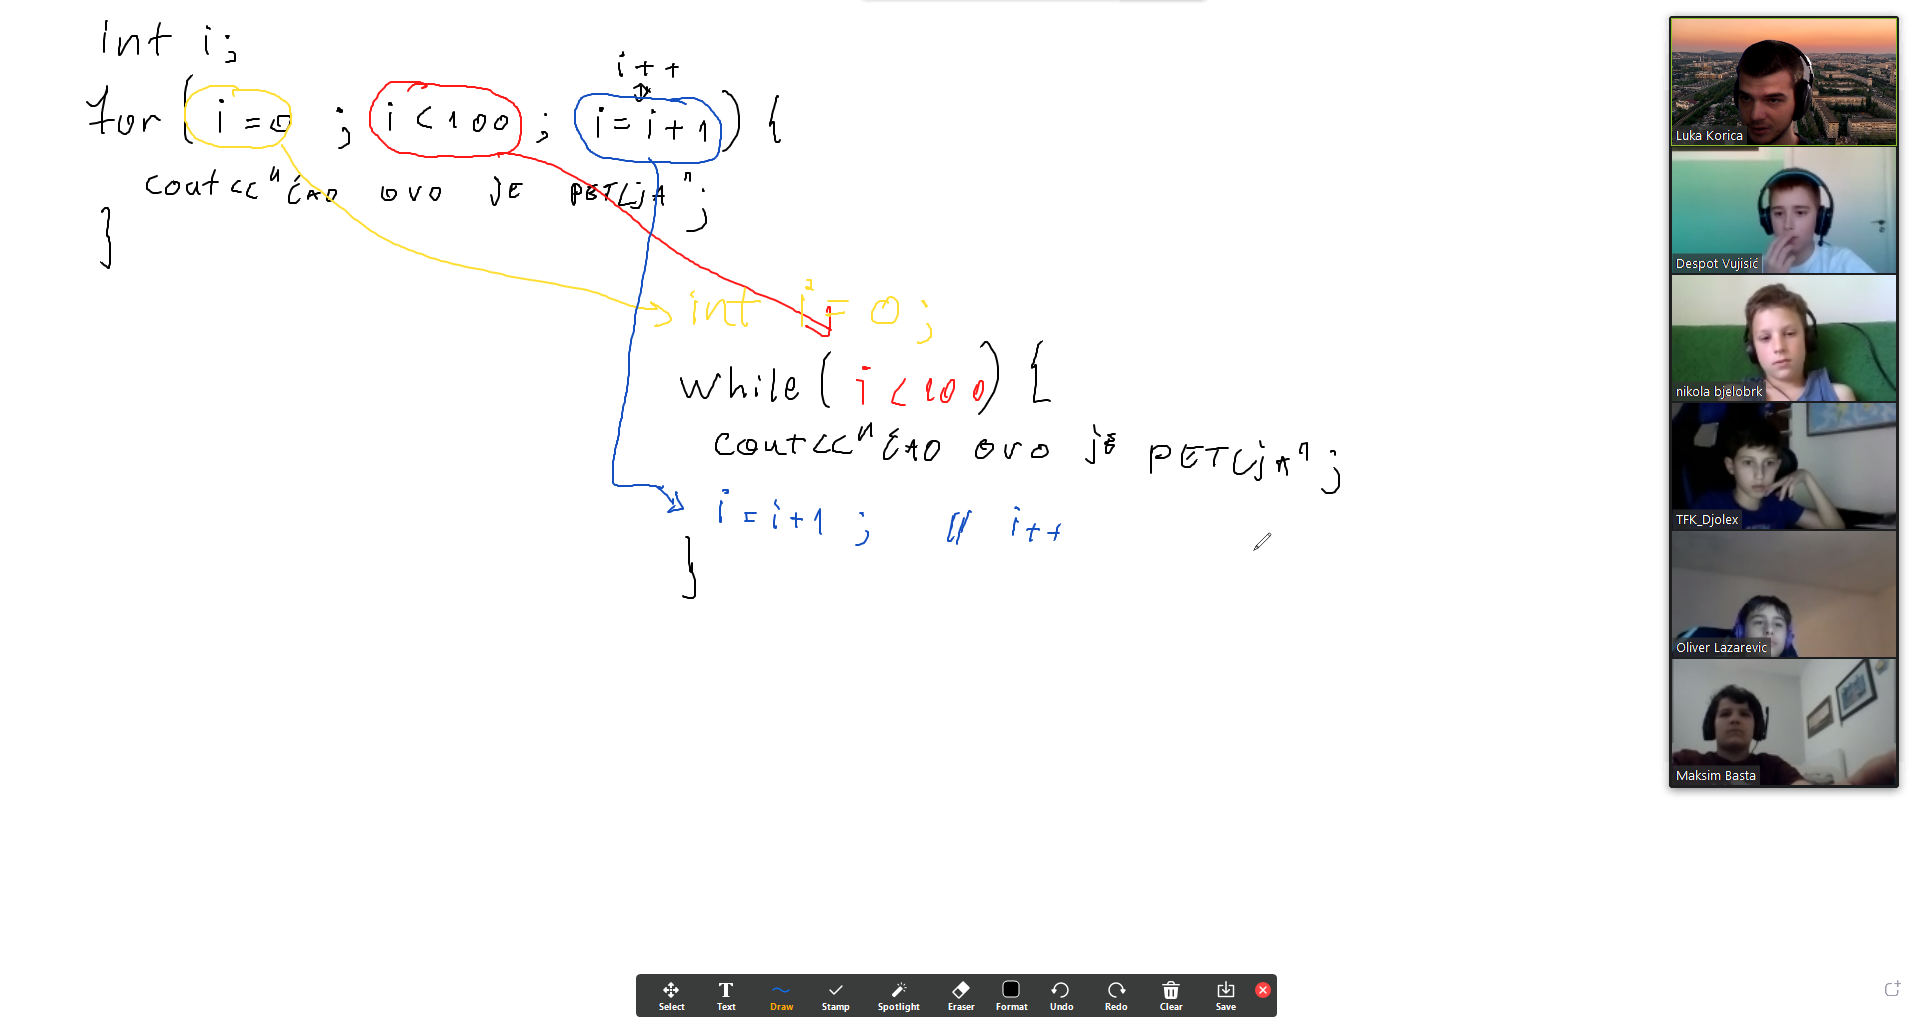 int i;
i++
for (i=0 ; i<100 ; i=i+1) {
cout<<"ĆAO ovo JE PETLjA";
}
int i=0;
while (i<100) {
cout<<"ĆAO ovo jE PETLjA";
i=i+1; // i++
}
Luka Korica
Despot Vujisić
nikola bjelobrk
TFK_Djolex
Oliver Lazarevic
Maksim Basta
Select Text Draw Stamp Spotlight Eraser Format Undo Redo Clear Save